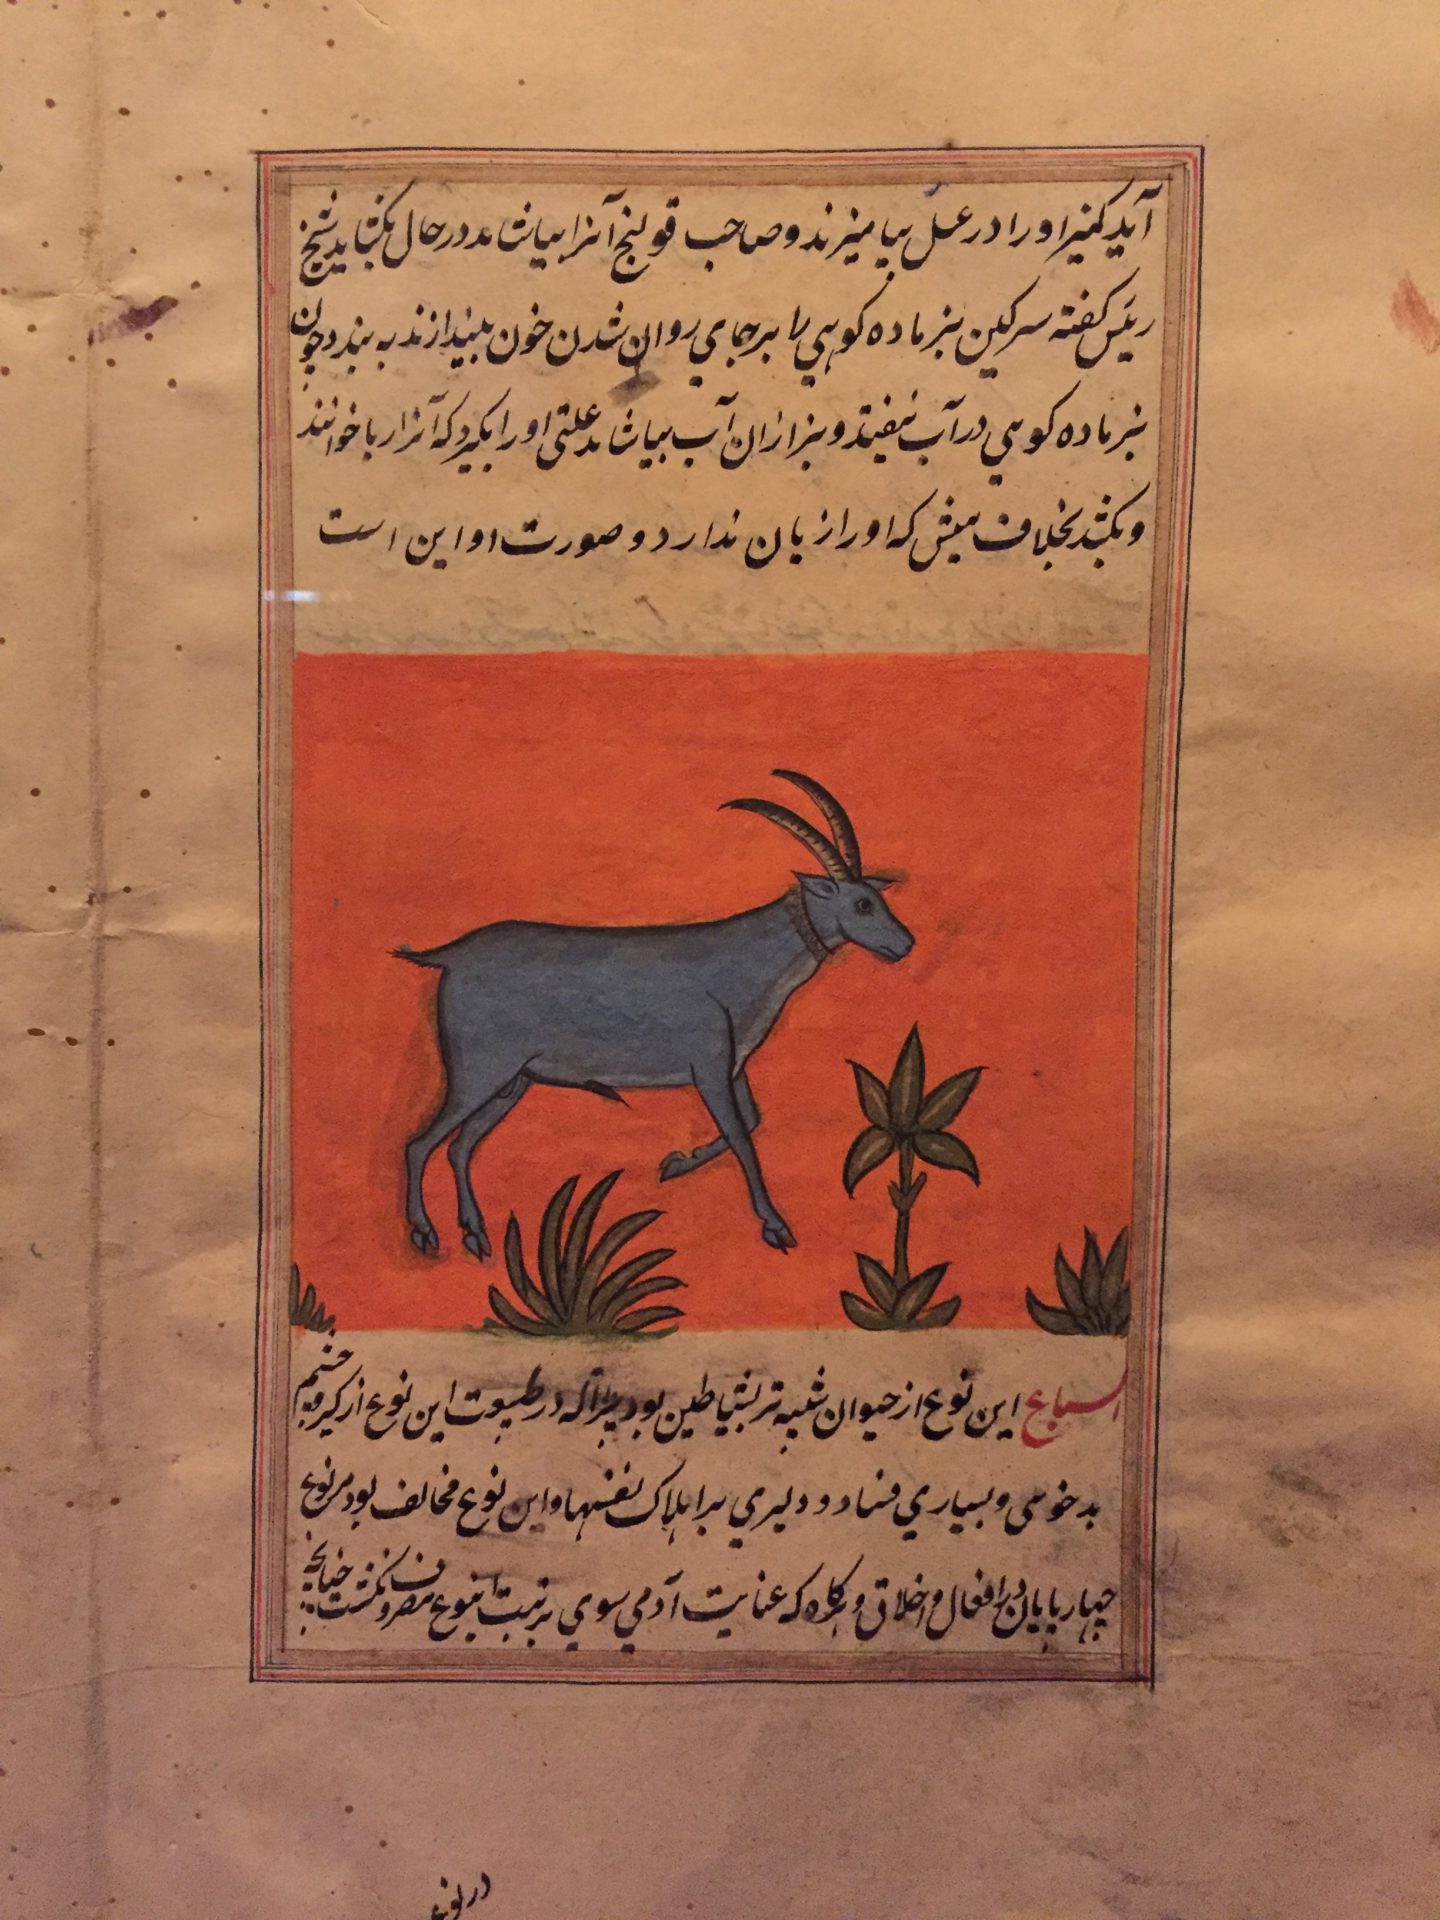 آید کمیز او را در عسل بیامیزند و صاحب قولنج آنرا بیاشامد در حال بکشاید شیخ
رئیس کفته سرکین بز ماده کوهی را بر جای روان شدن خون بیندازند به بندد و چون
بز ماده کوهی در آب بیفتد و بز از ان آب بیاشامد علتی او را بکیرد که آنرا ربا خوانند
و بکشد بخلاف میش که او را زیان ندارد و صورت او این است
السباع این نوع از حیوان شبیه تر بشیاطین بود چرا که در طبیعت این نوع از کبر و خشم
بد خوی و بسیاری فساد و دلیری بر اهلاک نفسها و این نوع مخالف بود مر نوع
چهار پایان را در افعال و اخلاق و که عنایت آدمی سوی تربیت اینوع مصروف نکشت چنانچه
در نوع